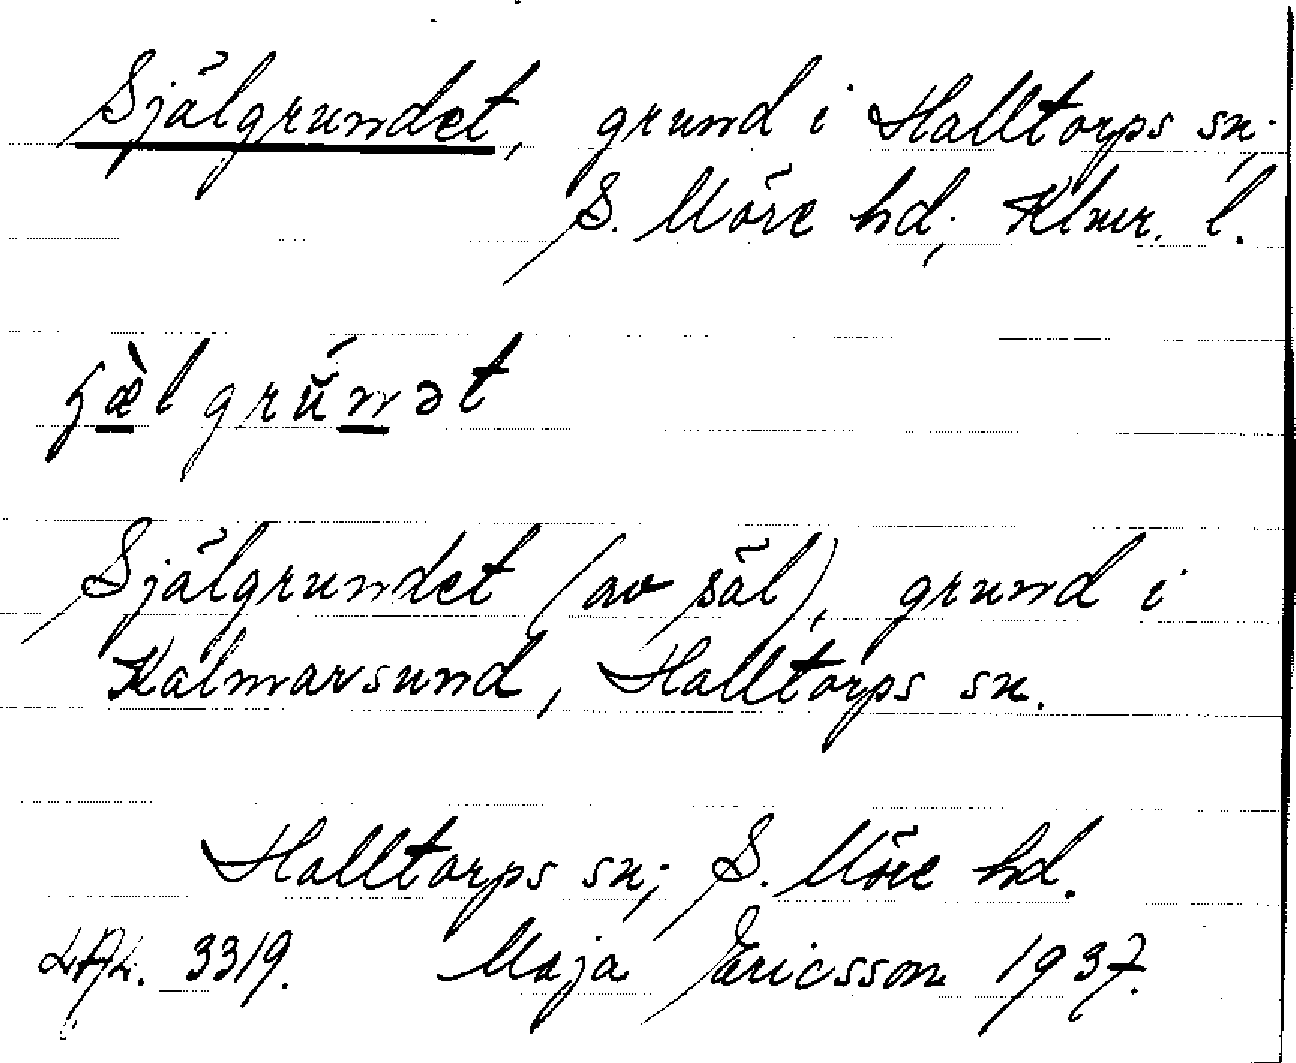 Själgrundet, grund i Halltorps sn,
S. Möre hd, Klmr. l.
Själgrundet (av säl), grund i
Kalmarsund, Halltorps sn.
Halltorps sn, S. Möre hd.
3319. Maja Ericsson 1937.